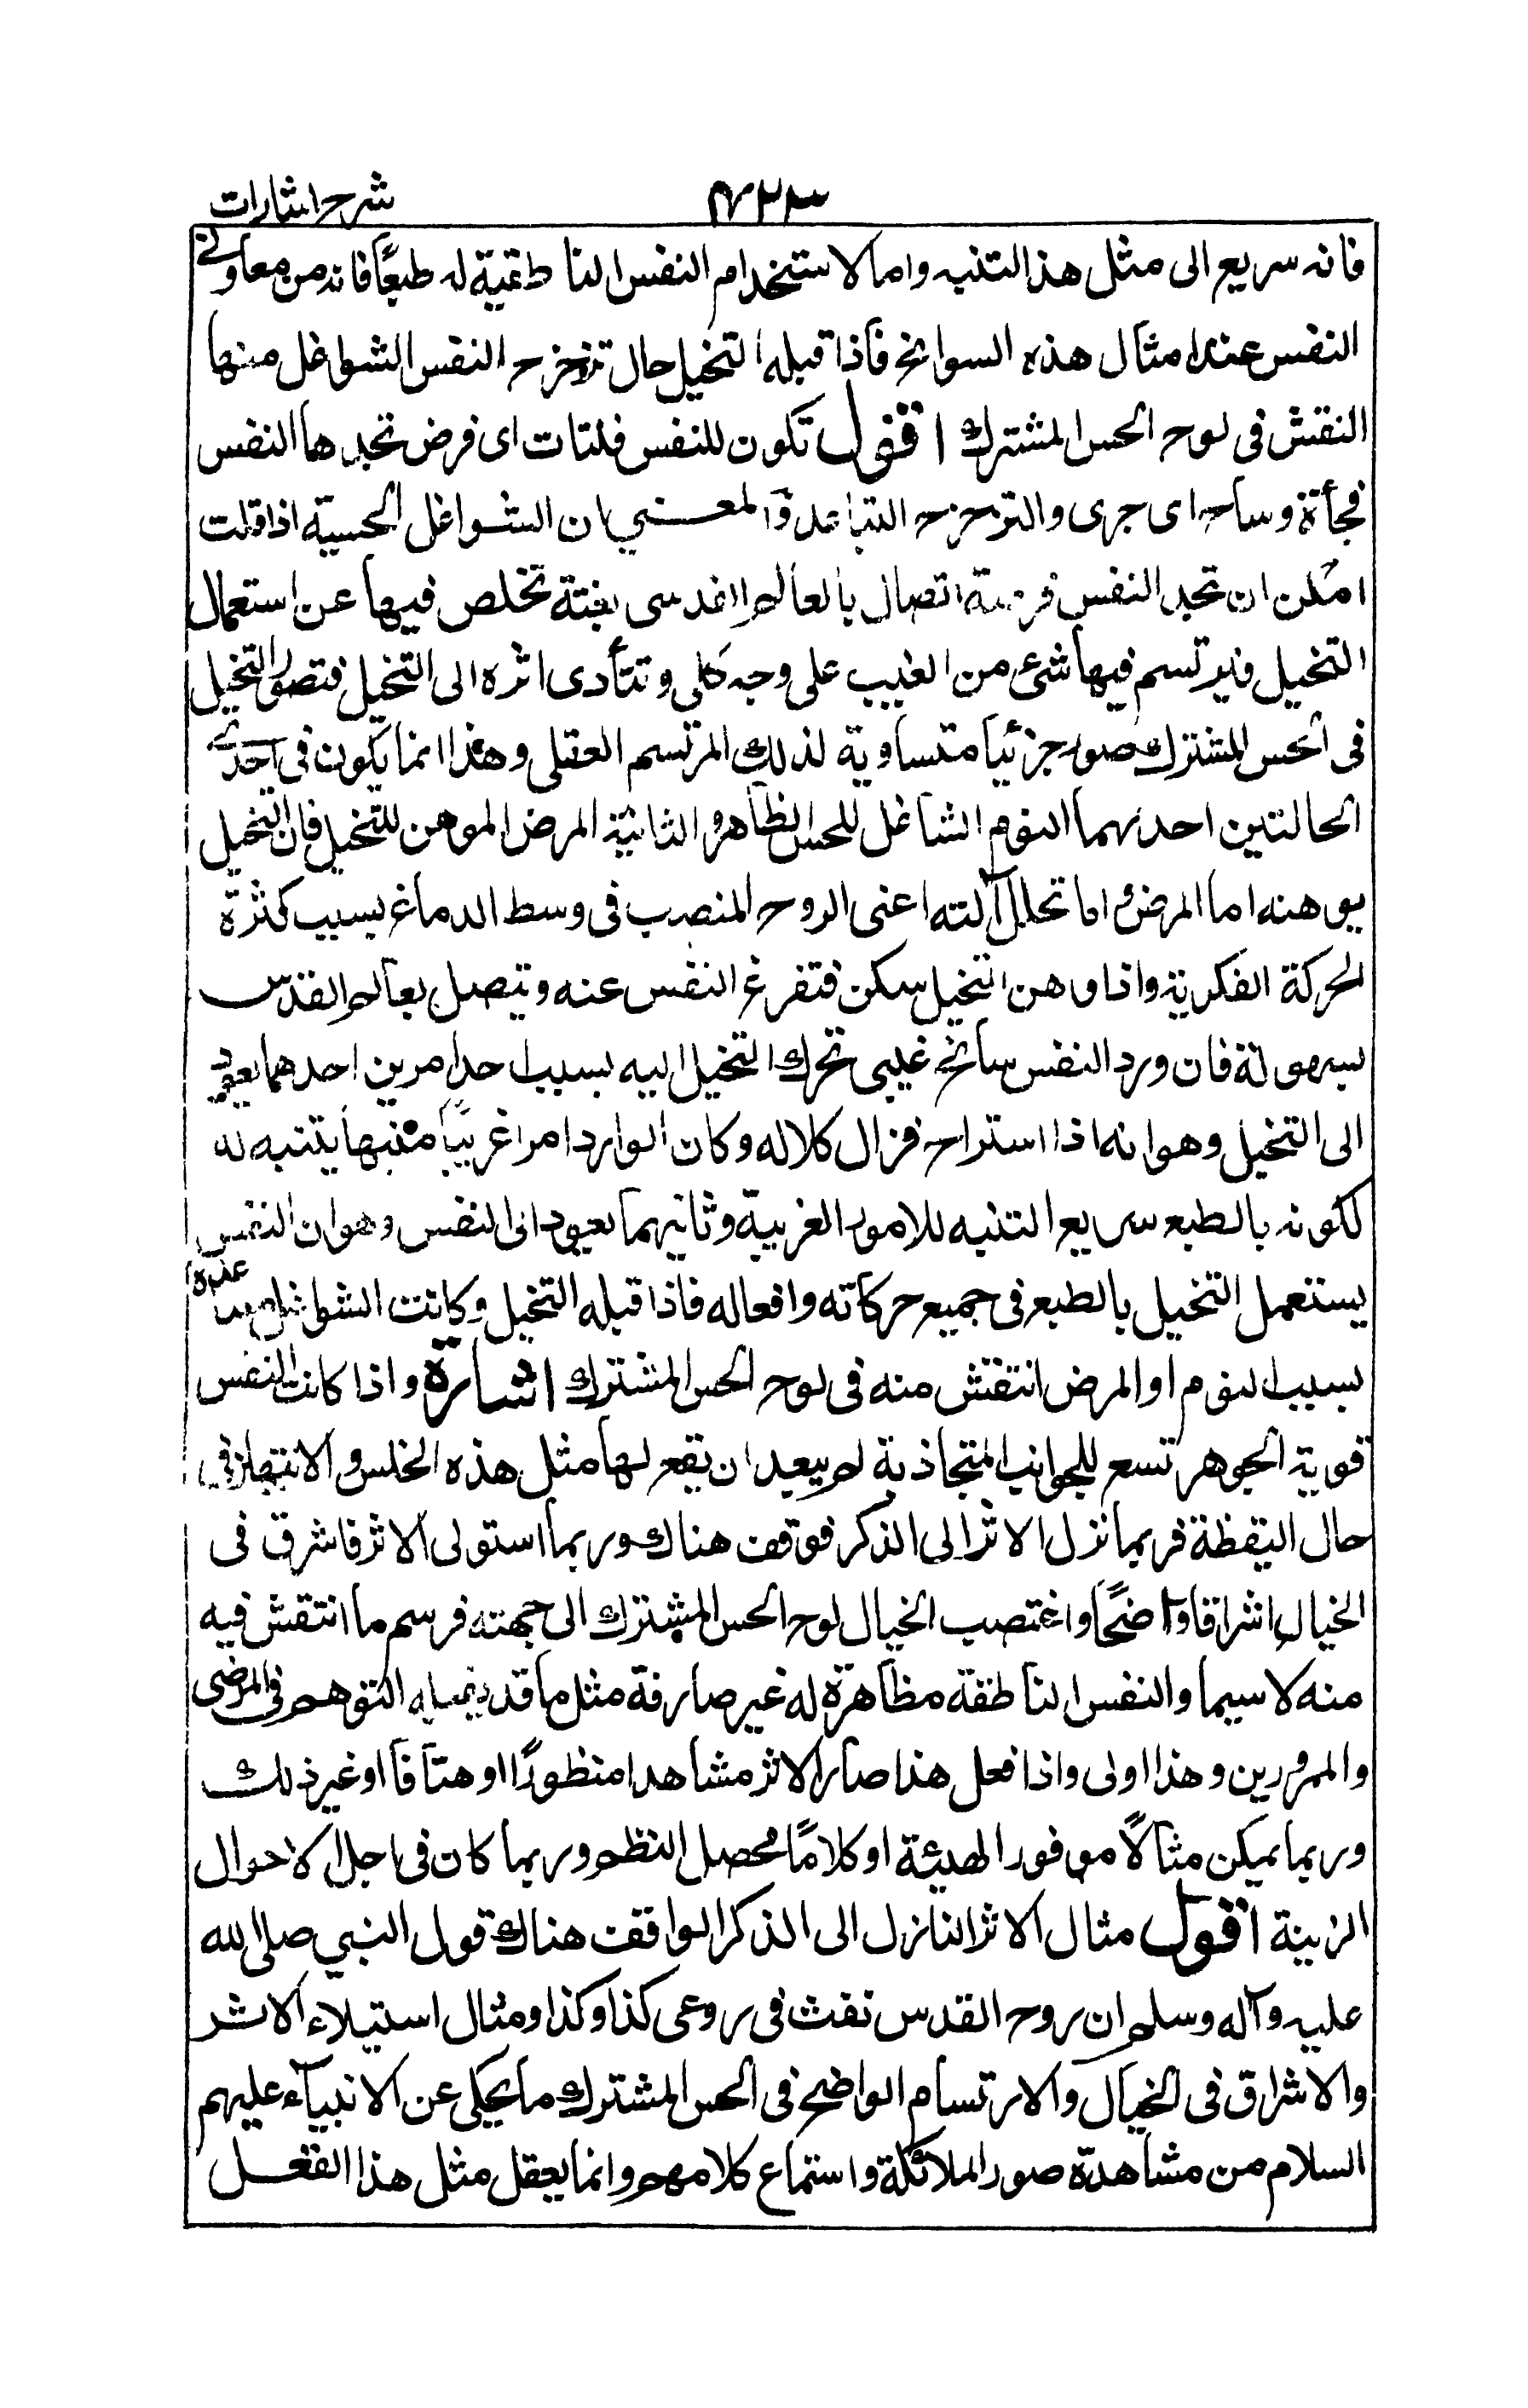 شرح اشارات
فانه سريع الى مثل هذا التنبه واما لاستخدام النفس الناطقية له طبعًا فانه من معاونى
النفس عند امثال هذه السوانح فاذا قبله التخيل حال تزحزح النفس الشواغل منها
انتقش فى لوح الحس المشترك اقول تكون للنفس فلتات اى فرض تجدها النفس
فجأة وساح اى جرى والتزحزح التباعد والمعنى ان الشواغل الحسية اذا قلت
امكن ان تجد النفس فرصة اتصال بالعالم القدسى بغتة تخلص فيها عن استعمال
التخيل فيرتسم فيها شئ من الغيب على وجه كلى وتتأدى اثره الى التخيل فتصور التخيل
فى الحس المشترك صور جزئيا متساوية لذلك المرتسم العقلى وهذا انما يكون فى احدى
الحالتين احدىهما النوم الشاغل للحس الظاهر والثانية المرض الموهن للتخيل فان التخيل
يوهنه اما المرض او تحلل آلته اعنى الروح المنصب فى وسط الدماغ بسبب كثرة
الحركة الفكرية واذا وهن التخيل سكن فتفرغ النفس عنه ويتصل بعالم القدس
بسهولة فان ورد النفس سانح غيبى تحرك التخيل اليه بسبب احد امرين احدهما يعود
الى التخيل وهو انه اذا استراح فزال كلاله وكان الوارد امرا غريبًا منبها يتنبه له
لكونه بالطبع سريع التنبه للامور الغريبة وثانيهما يعود الى النفس وهو ان النفس
يستعمل التخيل بالطبع فى جميع حركاته وافعاله فاذا قبله التخيل وكانت الشواغل
بسبب النوم او المرض انتقش منه فى لوح الحس المشترك اشارة واذا كانت النفس
قوية الجوهر تسع للجوانب المتجاذبة لم يبعد ان يقع لها مثل هذه الخلس والانتهاز فى
حال اليقظة فربما نزل الاثر الى الذكر فوقف هناك وربما استولى الاثر فاشرق فى
الخيال اشراقا واضحًا واغتصب الخيال لوح الحس المشترك الى جهته فرسم ما انتقش فيه
منه لا سيما والنفس الناطقة مظاهرة له غير صارفة مثل ما قد يفعله التوهم فى المرضى
والممرورين وهذا اولى واذا فعل هذا صار الاثر مشاهدا منظورًا او هتافًا او غير ذلك
وربما يمكن مثالًا موفور الهيئة او كلامًا محصل النظم وربما كان فى اجل الاحوال
الزينة اقول مثال الاثر النازل الى الذكر الواقف هناك قول النبي صلى الله
عليه وآله وسلم ان روح القدس نفث فى روعى كذا وكذا ومثال استيلاء الاثر
والاشراق فى الخيال والارتسام الواضح فى الحس المشترك ما يحكى عن الانبيآء عليهم
السلام من مشاهدة صور الملائكة واستماع كلامهم وانما يعقل مثل هذا الفعل